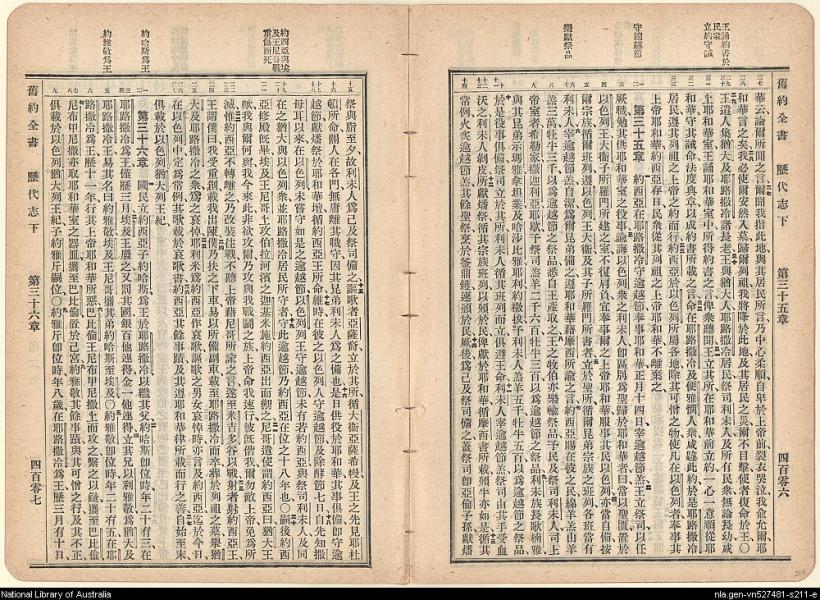 王誦約書於民衆
立約守誡
守逾越節
樂獻祭品
舊約全書 歷代志下 第三十五章 四百零六
華云論爾所聞之言爾聞我指此地與其居民所言乃中心柔順自卑於上帝前裂衣哭泣我會允爾耶
和華言之矣我必使爾安然入墓歸爾列祖我將降於此地及其居民之災爾不目擊使者復命於王〇
王遣人集猶大及耶路撒冷諸長老王與猶大人耶路撒冷居民祭司利未人及所有民衆無論長幼咸
上耶和華室王誦耶和華室中所得約書之言俾衆聽聞王立其所在耶和華前立約一心一意順從耶
和華守其誡命法度典章以成約書所載之言命在耶路撒冷及便雅憫人衆咸
居民遵其列祖之上帝之約而行約西亞於以色列所屬各地除其可憎之物使凡在以色列者奉事其
上帝耶和華約西亞存日民衆從其列祖之上帝耶和華不離棄之
第三十五章 約西亞在耶路撒冷守逾越節奉事耶和華正月十四日宰逾越節羔王立祭司以任
厥職勸其供耶和華室之役事諭誨以色列衆之利未人即區別為聖歸於耶和華者曰當以聖匱置於
以色列王大衛子所羅門所建之室不復肩負宜奉事爾之上帝耶和華服事其民以色列亦當自備按
爾宗族循爾班列遵以色列王大衛及其子所羅門所書者立於聖所循爾昆弟宗族之班列各班當有
利未人宰逾越節羔自潔為爾昆弟備之遵耶和華藉摩西所諭之言約西亞賜在彼之民綿羊羔山羊
羔三萬牡牛三千以為逾越節之祭品悉自王產取之王之牧伯亦樂輸祭品予民及祭司利未人司上
帝室者希勒家撒迦利亞耶歇予祭司羔羊二千六百牡牛三百以為逾越節之祭品利未族長歌楠雅
與其昆弟示瑪雅拿坦業及哈沙比雅耶利約撒拔予利未人羔羊五千牡牛五百以為逾越節之祭品
於是從事俱備祭司立於其所利未人循其班列而立俱遵王命利未人宰逾越節羔祭司由其手受血
沃之利未人剝皮所獻燔祭循其宗族班列以頒於民俾獻於耶和華循摩西書所載頒牛亦如是循其
常例火炙逾越節羔其餘聖祭烹於釜鼎鑊速頒於民厥後為己及祭司備之蓋祭司即亞倫子孫獻燔
約西亞與埃及王尼哥戰
重傷而死
約哈斯為王
約雅敬為王
祭與脂至夕故利未人為己及祭司備之謳歌者亞薩裔立於其所循大衛亞薩希幔及王之先見耶杜
頓所命閽人在各門無庸離其職守因其昆弟利未人為之備也是日供役於耶和華其事俱備即守逾
越節獻燔祭於耶和華壇循約西亞王所命維時在彼之以色列人守逾越節及除酵節七日自先知撒
母耳以來在以色列未嘗守如是之逾越節以色列列王守逾越節未有若約西亞與祭司利未人及同
在之猶大與以色列衆並耶路撒冷居民所守者守此逾越節乃約西亞在位之十八年也〇厥後約西
亞修殿既畢埃及王尼哥上攻伯拉河濱之迦基米施約西亞出而禦之尼哥遣使謂約西亞曰猶大王
歟我與爾何與我今來此非欲攻爾乃攻與我戰鬬之族上帝命我速行彼既偕我爾勿敵上帝免為所
滅惟約西亞不轉離之乃改裝往戰不聽上帝藉尼哥所諭之言遂至米吉多谷以戰射者射約西亞王
王謂僕曰我受重創載我出陳僕乃扶之下車易以所備副車載至耶路撒冷而卒葬於列祖之墓舉猶
大及耶路撒冷之衆為之哀悼耶利米為約西亞作哀歌謳歌之男女哀悼時亦言及約西亞迄於今日
在以色列中定為常例其詞載於哀歌書約西亞其餘事蹟及其遵耶和華律所載而行之善自始至末
俱載於以色列猶大列王紀
第三十六章 國民立約西亞子約哈斯為王於耶路撒冷以繼其父約哈斯即位時年二十有三在
耶路撒冷為王僅歷三月埃及王廢之又罰其國銀百他連得金一他連得立其兄以利雅敬為猶大及
耶路撒冷王易其名曰約雅敬埃及王尼哥攜其弟約哈斯至埃及〇約雅敬即位時年二十有五在耶
路撒冷為王歷十一年行其上帝耶和華所惡巴比倫王尼布甲尼撒上而攻之繫之以鏈攜至巴比倫
尼布甲尼撒亦取耶和華室之器皿攜至巴比倫置於己宮約雅敬其餘事蹟與其可憎之行及其不正
俱載於以色列猶大列王紀子約雅斤嗣位〇約雅斤即位時年八歲在耶路撒冷為王歷三月有十日
舊約全書 歷代志下 第三十六章 四百零七
210
National Library of Australia
nla.gen-vn527481-s211-e